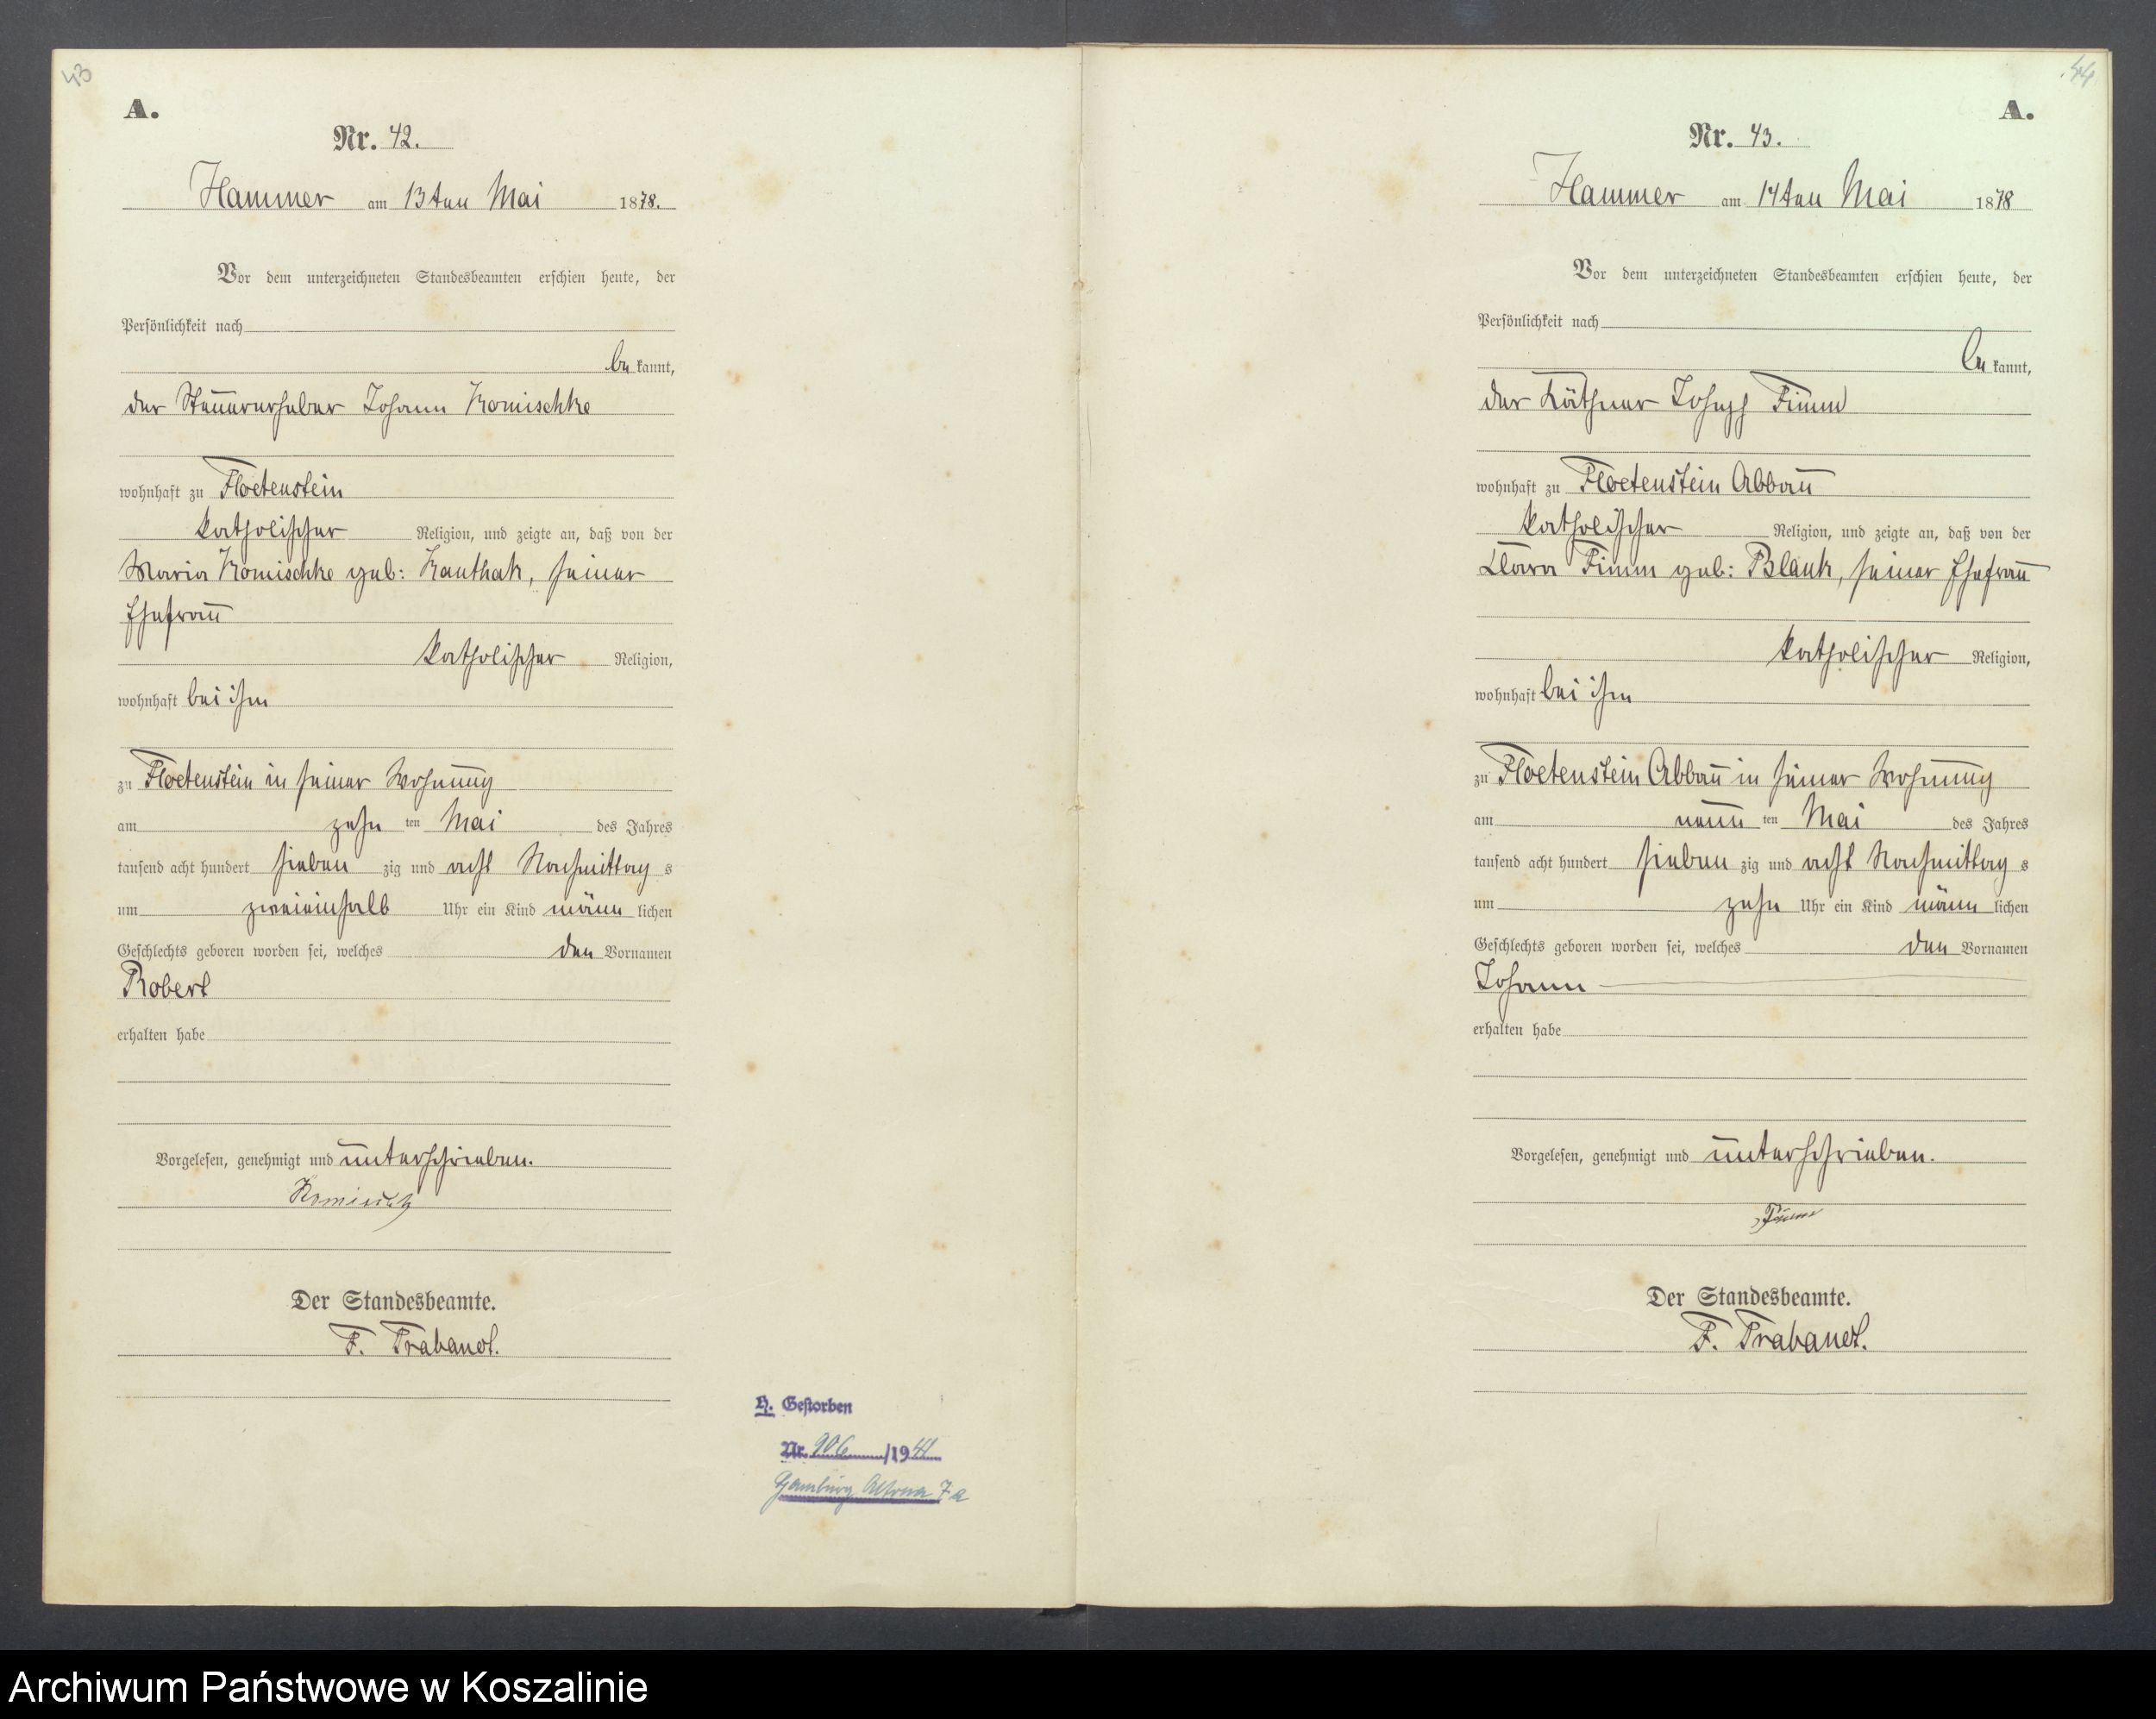 43
A.
Nr. 42.
Hammer am 13ten Mai 1878.
Vor dem unterzeichneten Standesbeamten erschien heute, der
Persönlichkeit nach
be kannt,
der Steuererheber Johann Komischke
wohnhaft zu Floetenstein
katholischer Religion, und zeigte an, daß von der
Maria Komischke geb: Kauthak, seiner
Ehefrau
katholischer Religion,
wohnhaft bei ihm
zu Floetenstein in seiner Wohnung
am zehn ten Mai des Jahres
tausend acht hundert sieben zig und acht Nachmittag s
um zweieinhalb Uhr ein Kind männ lichen
Geschlechts geboren worden sei, welches den Vornamen
Robert
erhalten habe
Vorgelesen, genehmigt und unterschrieben.
Der Standesbeamte.
F. Trabandt.
H. Gestorben
Nr. 906 /1941
Hamburg Altona 7a
44
A.
Nr. 43.
Hammer am 14ten Mai 1878
Vor dem unterzeichneten Standesbeamten erschien heute, der
Persönlichkeit nach
be kannt,
der Käthner Joseph Timm
wohnhaft zu Floetenstein Abbau
katholischer Religion, und zeigte an, daß von der
Clara Timm geb: Blank, seiner Ehefrau
katholischer Religion,
wohnhaft bei ihm
zu Floetenstein Abbau in seiner Wohnung
am neun ten Mai des Jahres
tausend acht hundert sieben zig und acht Nachmittag s
um zehn Uhr ein Kind männ lichen
Geschlechts geboren worden sei, welches den Vornamen
Johann
erhalten habe
Vorgelesen, genehmigt und unterschrieben.
Timm
Der Standesbeamte.
F. Trabandt.
Archiwum Państwowe w Koszalinie